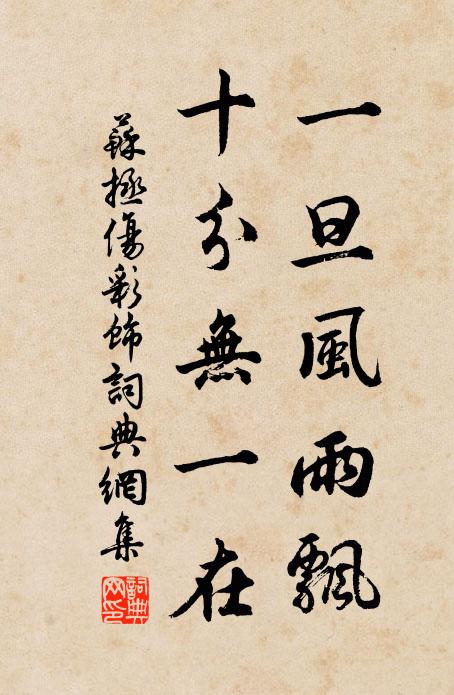 一旦風雨飄
十分無一在
蘇拯傷彩飾詞典網集
詞典網印